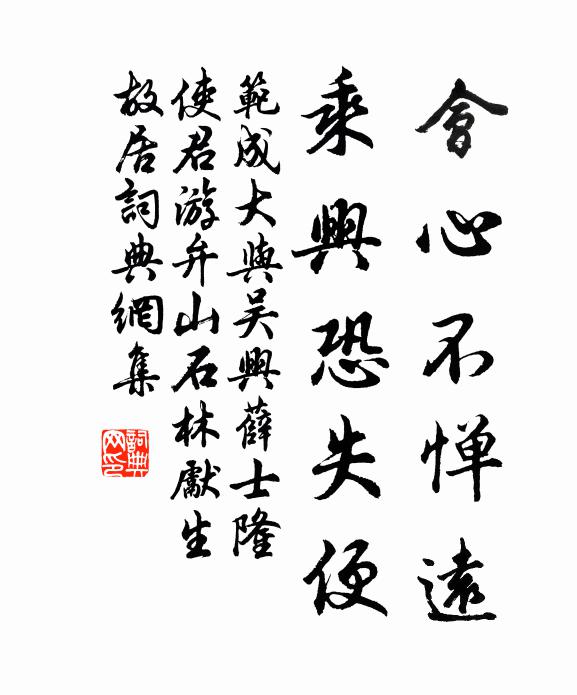 會心不惮遠
乘興恐失便
範成大與吴興薛士隆
使君游弁山石林獻生
故居詞典網集
詞典网印